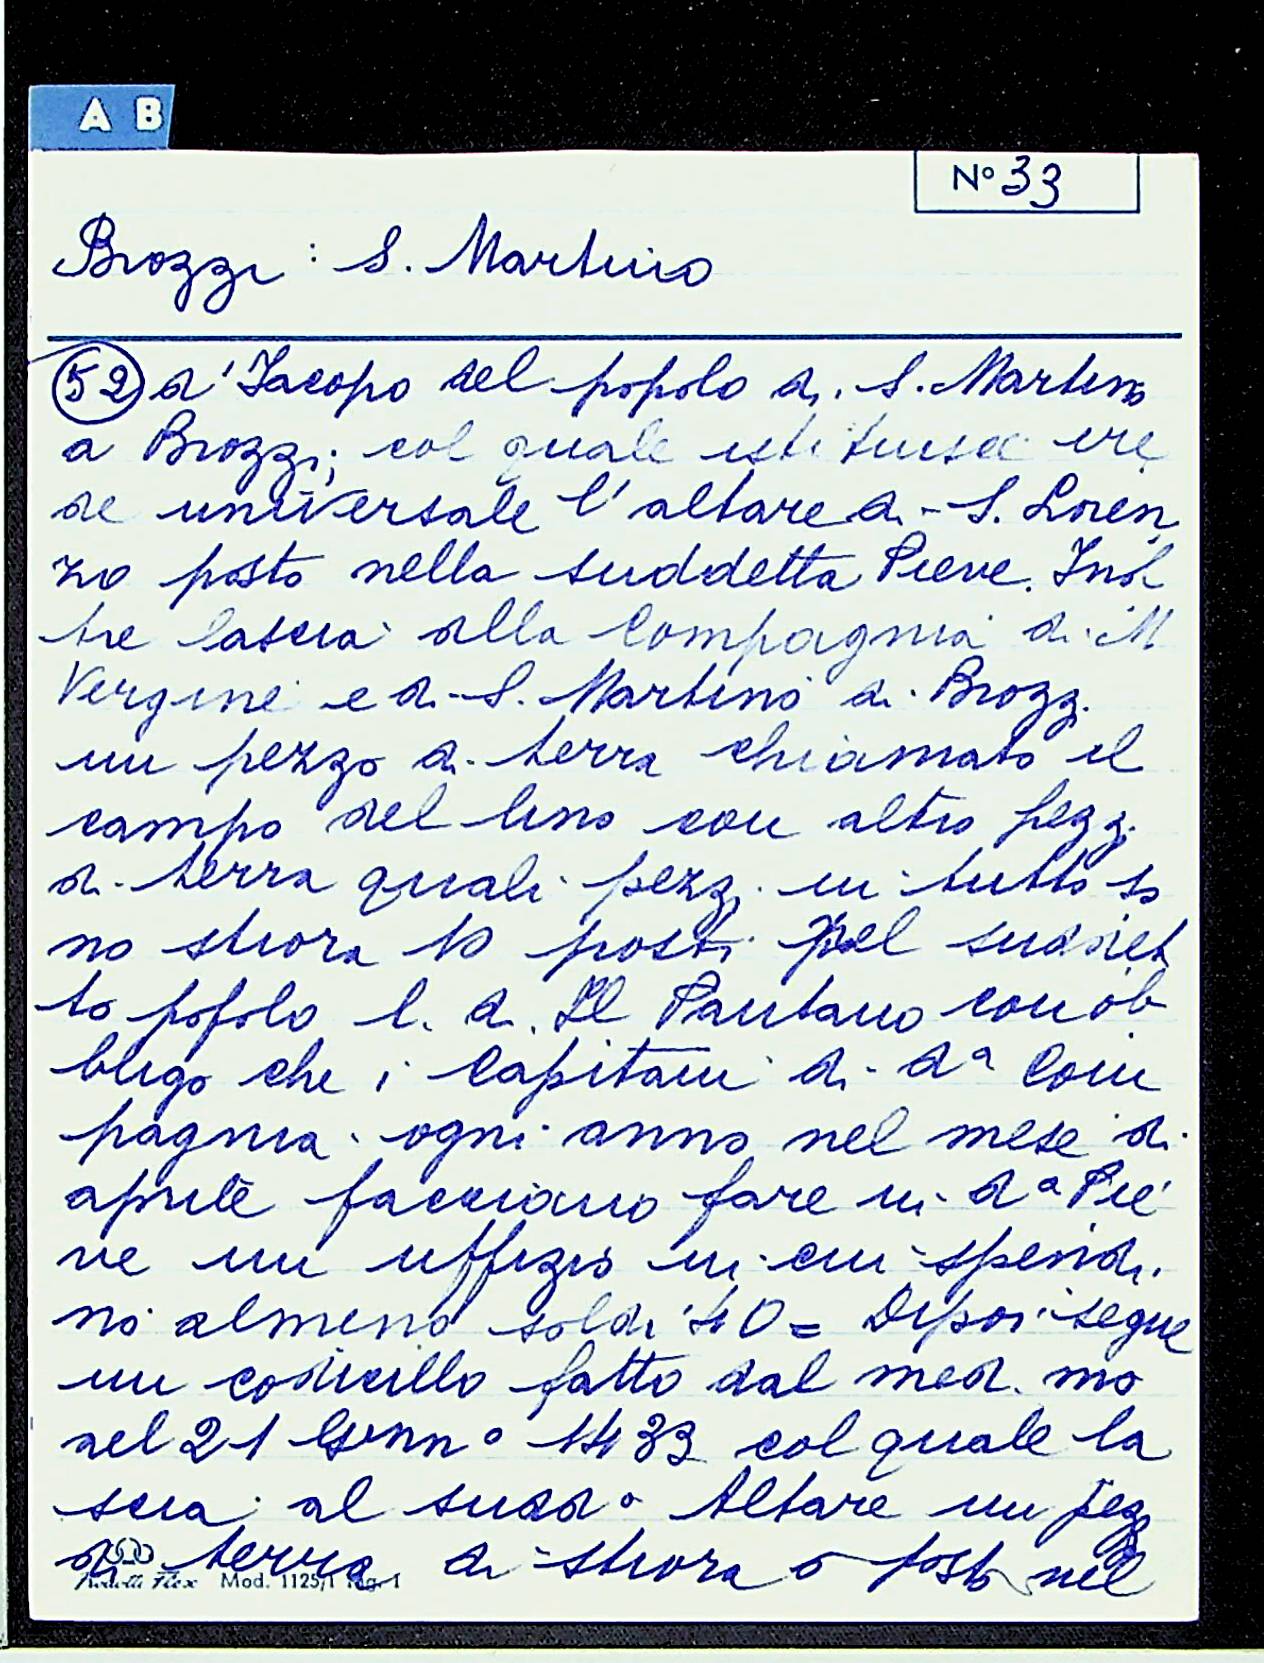 A B
N° 33
Brozzi : S. Martino
52 d'Jacopo del popolo di S. Martino
a Brozzi; col quale istituisce ere
de universale l'altare di S. Loren
zo posto nella suddetta Pieve. Inol
tre lascia alla Compagnia di M
Vergine e di S. Martino di Brozzi
un pezzo di terra chiamato il
campo del lino con altro pezzi
di terra quali pezzi in tutto so
no stiora 10 posti nel suddet
to popolo l. d. Il Pantano con ob
bligo che i Capitani di da Com
pagnia ogni anno nel mese di
aprile facciano fare in da Pie
ve un uffizio in cui spendi
no almeno soldi 40 = Dipoi segue
un codicillo fatto dal med. mo
nel 21 Genn° 1433 col quale la
scia al sudd° Altare un pezz
di terra di stiora posto nel
Flex Mod. 1125/1 Pag. 1